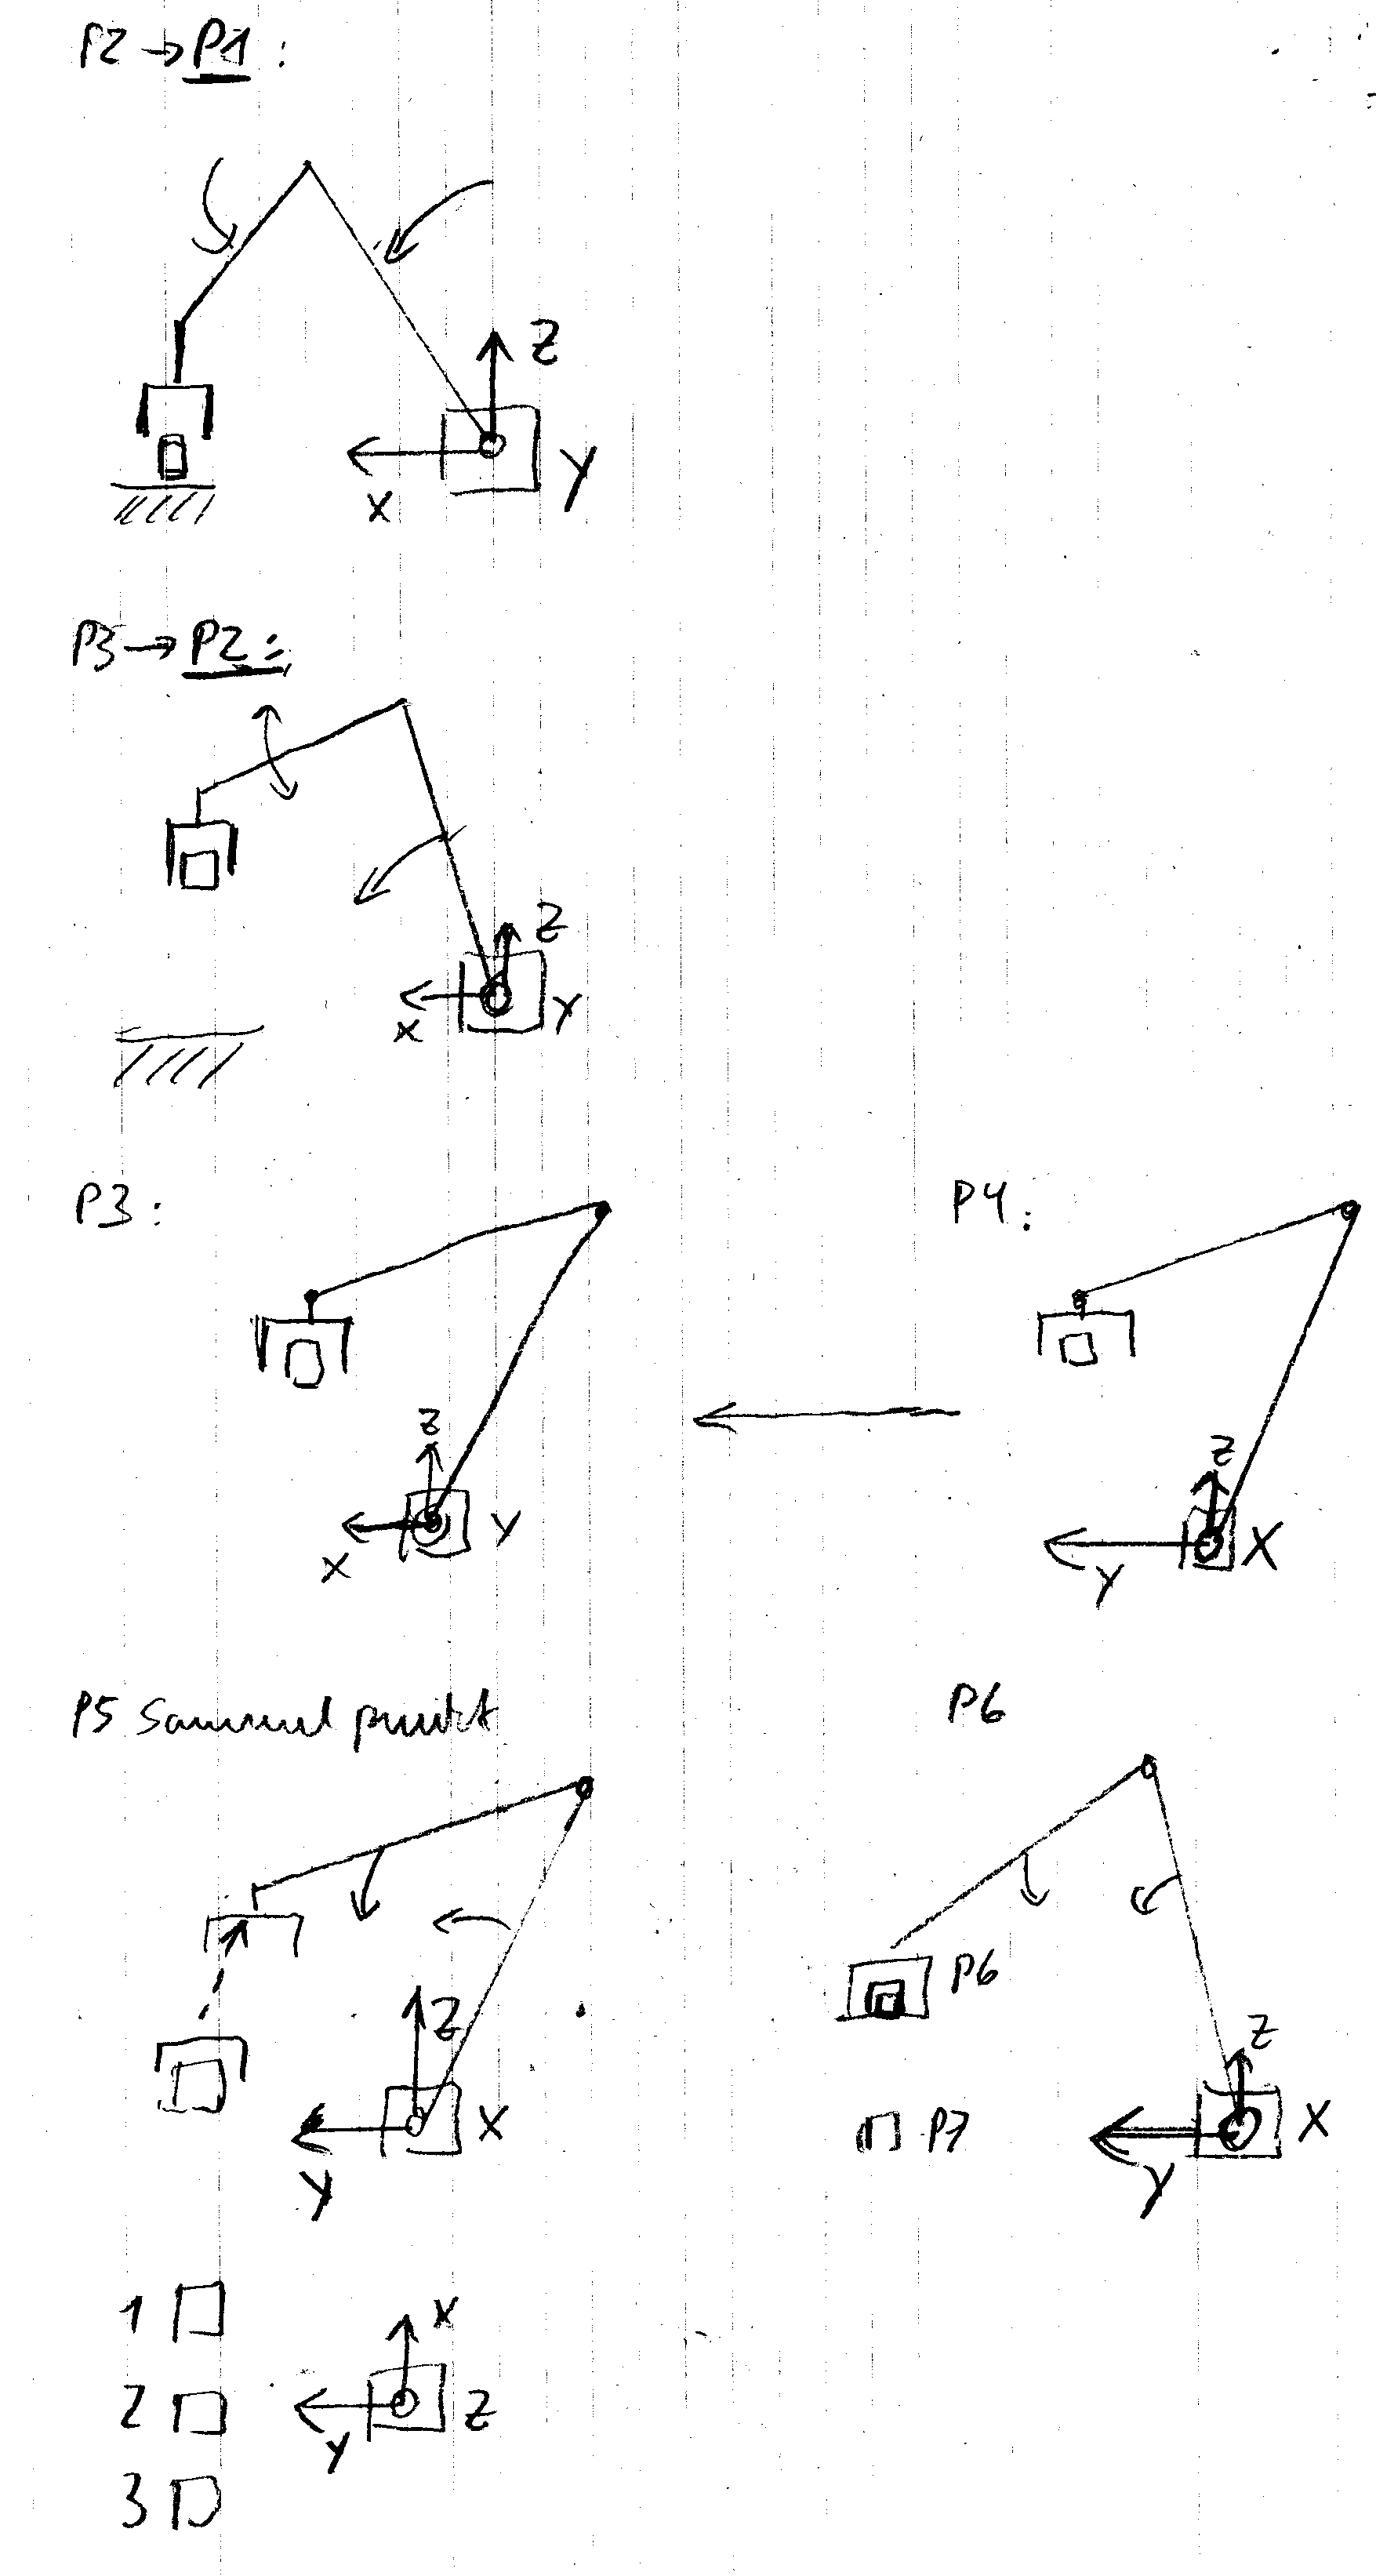 P2 → P1 :
Z
X
Y
P3 → P2 :
Z
X
Y
P3 :
P4 :
Z
X
Y
Z
Y
X
P5 Sammel punkt
P6
P6
Z
Y
X
P7
Z
Y
X
1
2
3
X
Y
Z